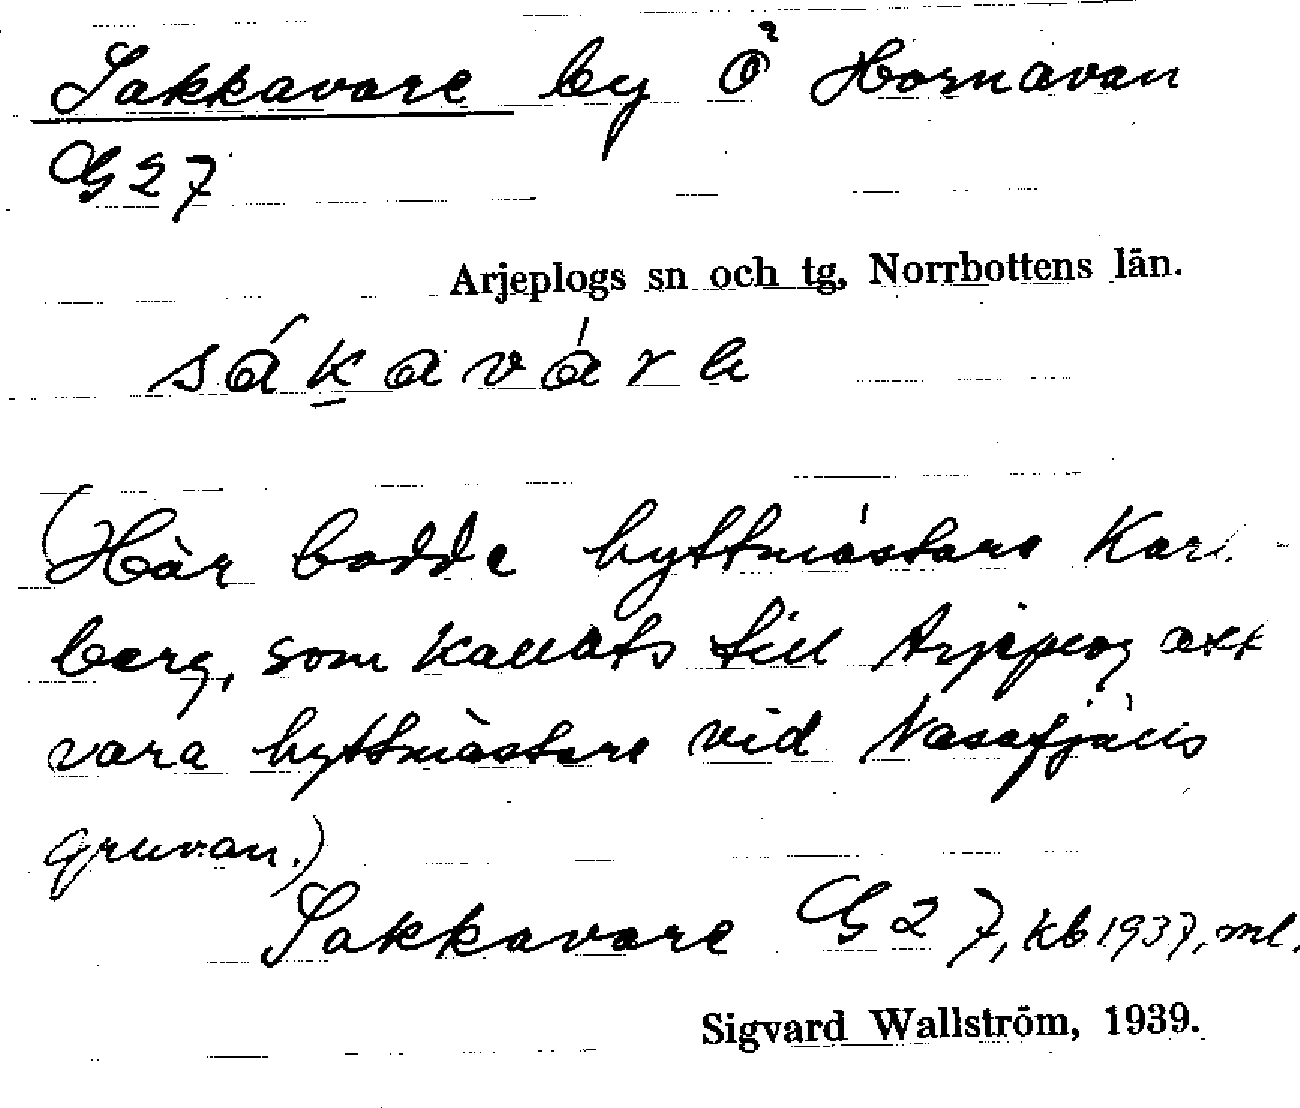 Sakkavare by Ö Hornavan
G27
Arjeplogs sn och tg, Norrbottens län.
sákavárɛ
(Här bodde hyttmästare Karl-
berg, som kallats till Arjeplog att
vara hyttmästare vid Nasafjälls
gruvan.)
Sakkavare G27, kb 1937, ml.
Sigvard Wallström, 1939.